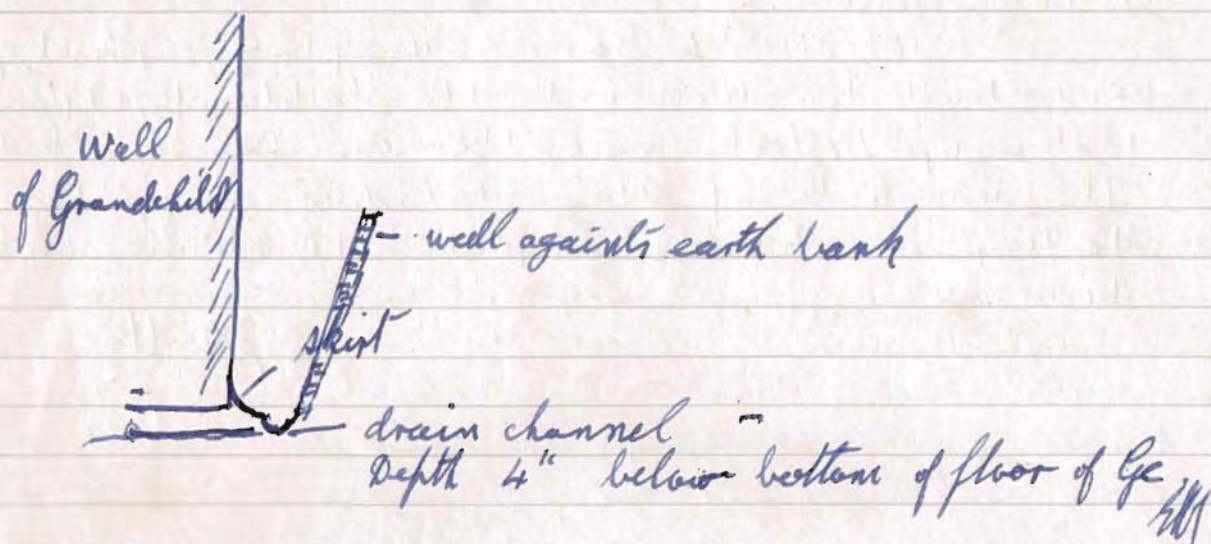 Wall
of Grandchild
- wall againts earth bank
skirt
drain channel -
Depth 4" below bottom of floor of Gc